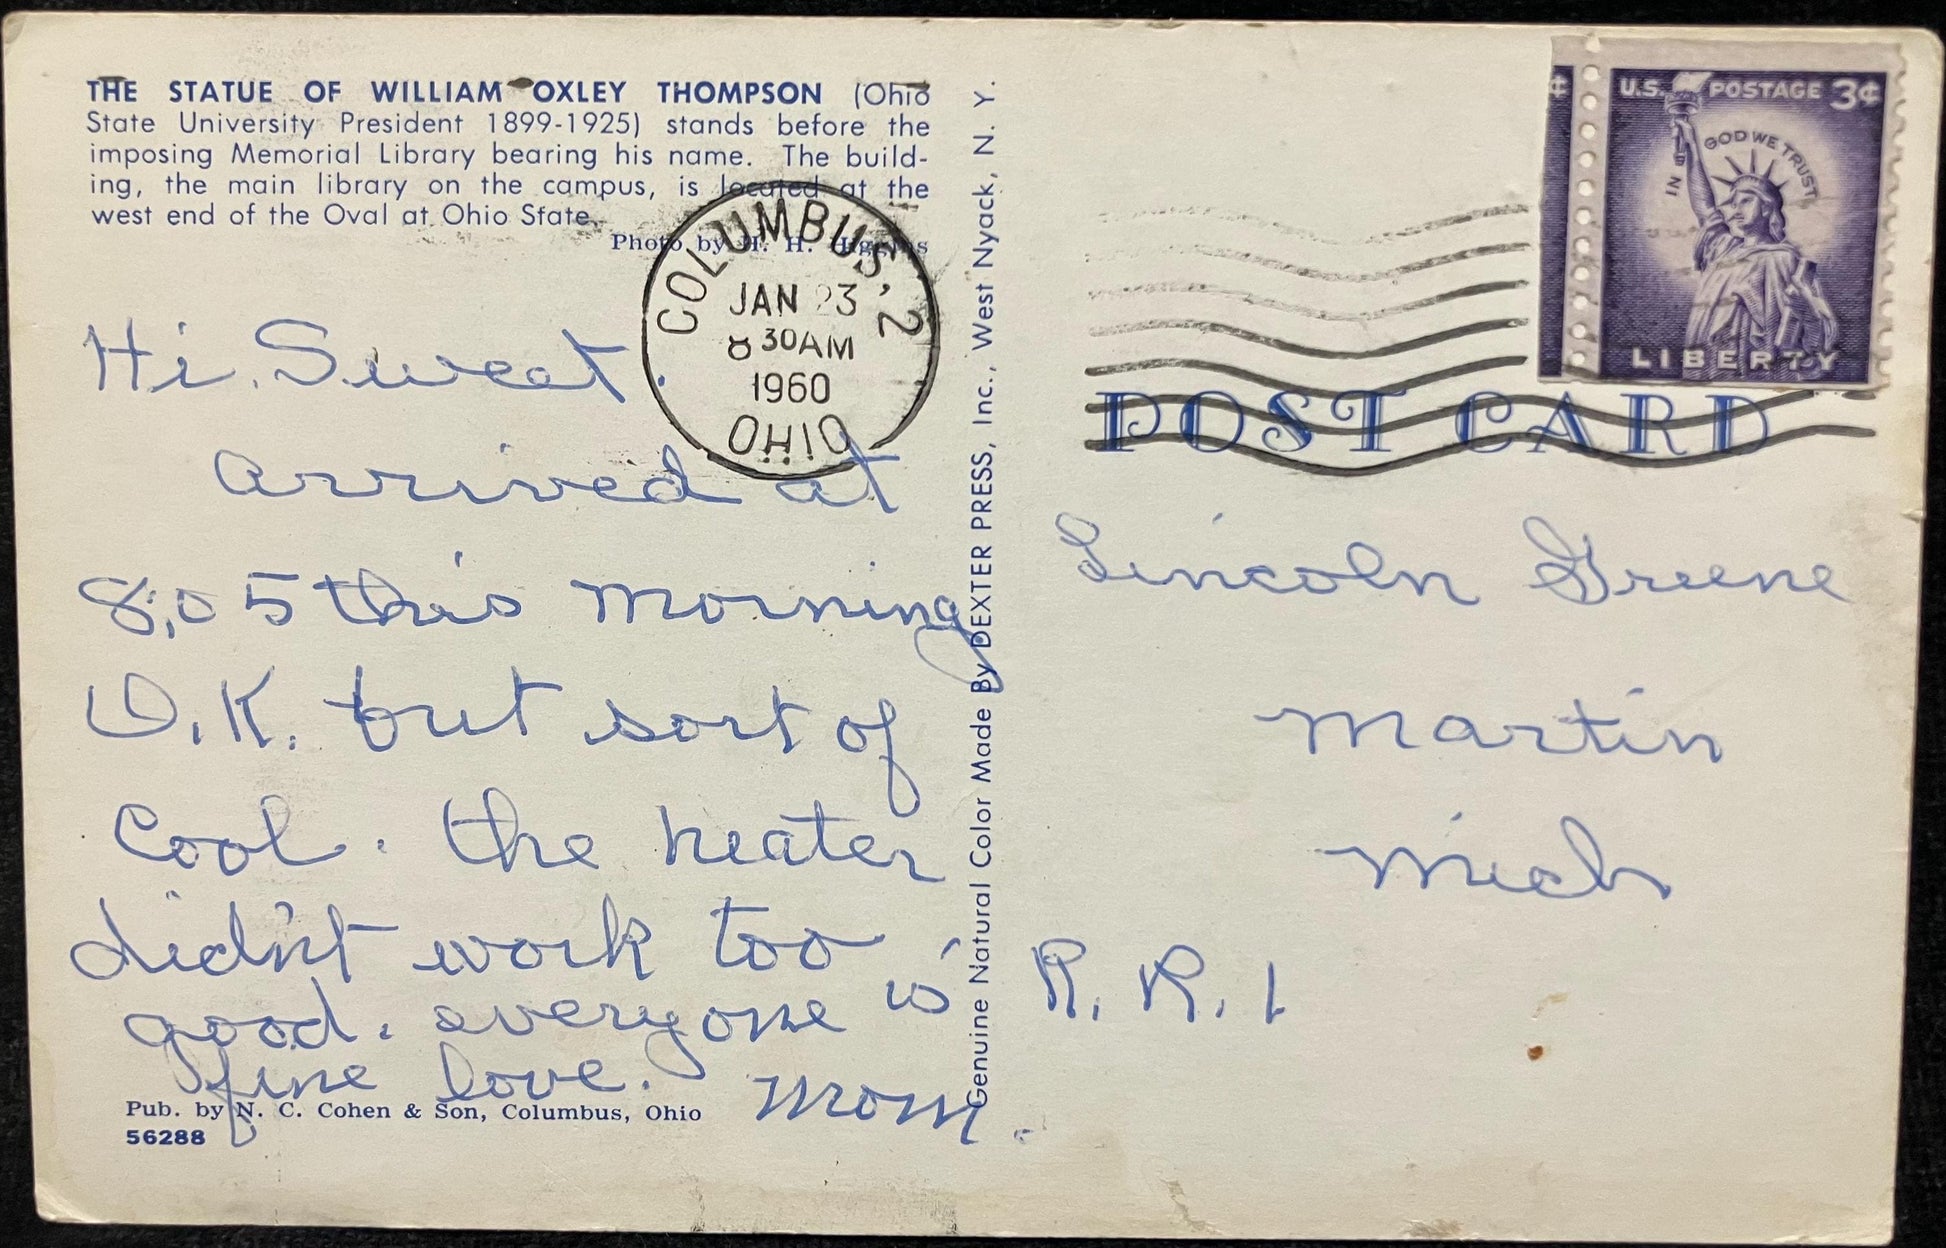 THE STATUE OF WILLIAM OXLEY THOMPSON (Ohio
State University President 1899-1925) stands before the
imposing Memorial Library bearing his name. The build-
ing, the main library on the campus, is located at the
west end of the Oval at Ohio State.
Photo by H. H. Higgins
COLUMBUS, 2
JAN 23
8 30AM
1960
OHIO
Hi. Sweet.
arrived at
8;05 this morning
O.K. but sort of
Cool. the heater
didn't work too
good. everyone is
fine love. Mom.
Pub. by N. C. Cohen & Son, Columbus, Ohio
56288
Genuine Natural Color Made By DEXTER PRESS, Inc., West Nyack, N. Y.
¢
U.S. POSTAGE 3¢
IN GOD WE TRUST
LIBERTY
POST CARD
Lincoln Greene
Martin
Mich
R. R. 1